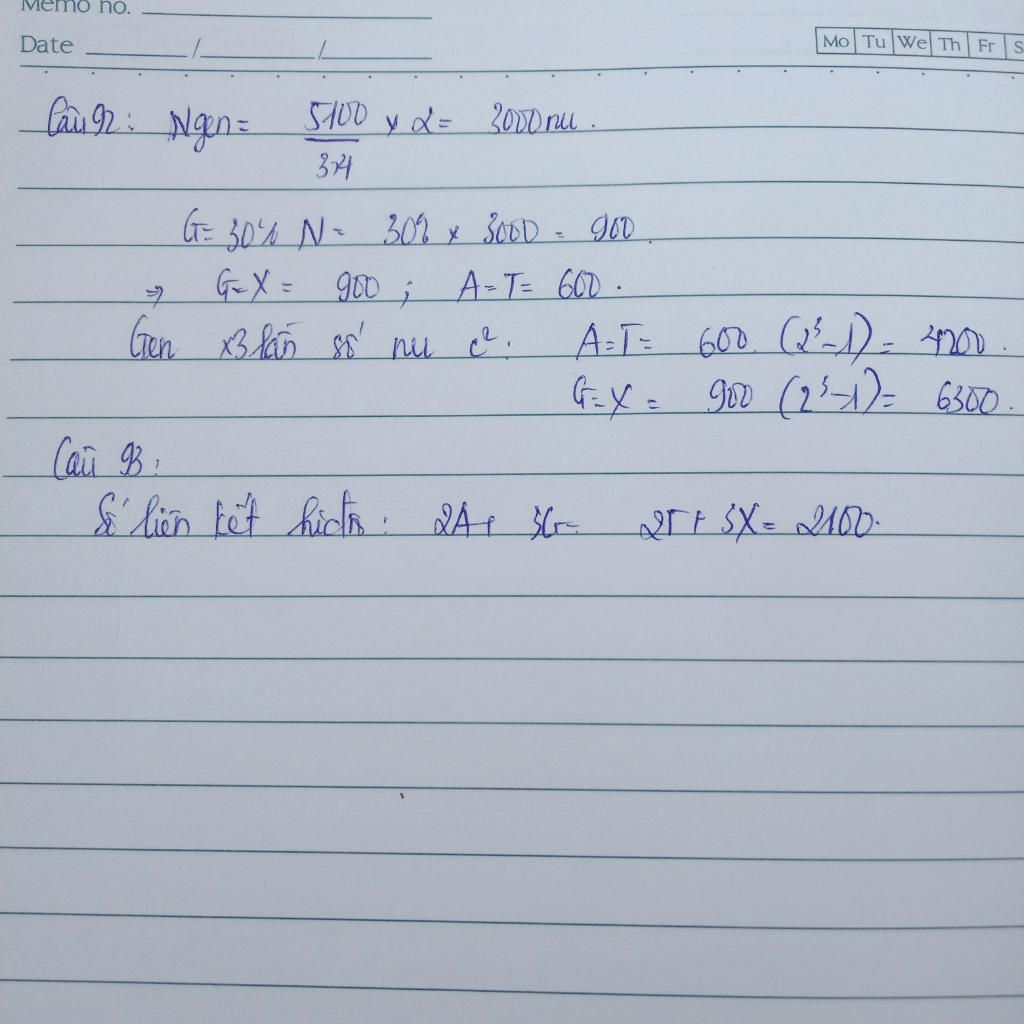 Memo no.
Date / /
Mo Tu We Th Fr S
Câu 92: Ngen = 5100/3,4 x 2 = 3000 nu.
G = 30% N = 30% x 3000 = 900.
=> G=X = 900 ; A=T= 600.
Gen x3 lần số nu c²: A=T= 600 (2³-1) = 4200.
G=X = 900 (2³-1) = 6300.
Câu 93:
Số liên kết hidro: 2A+ 3G= 2T+ 3X= 2100.